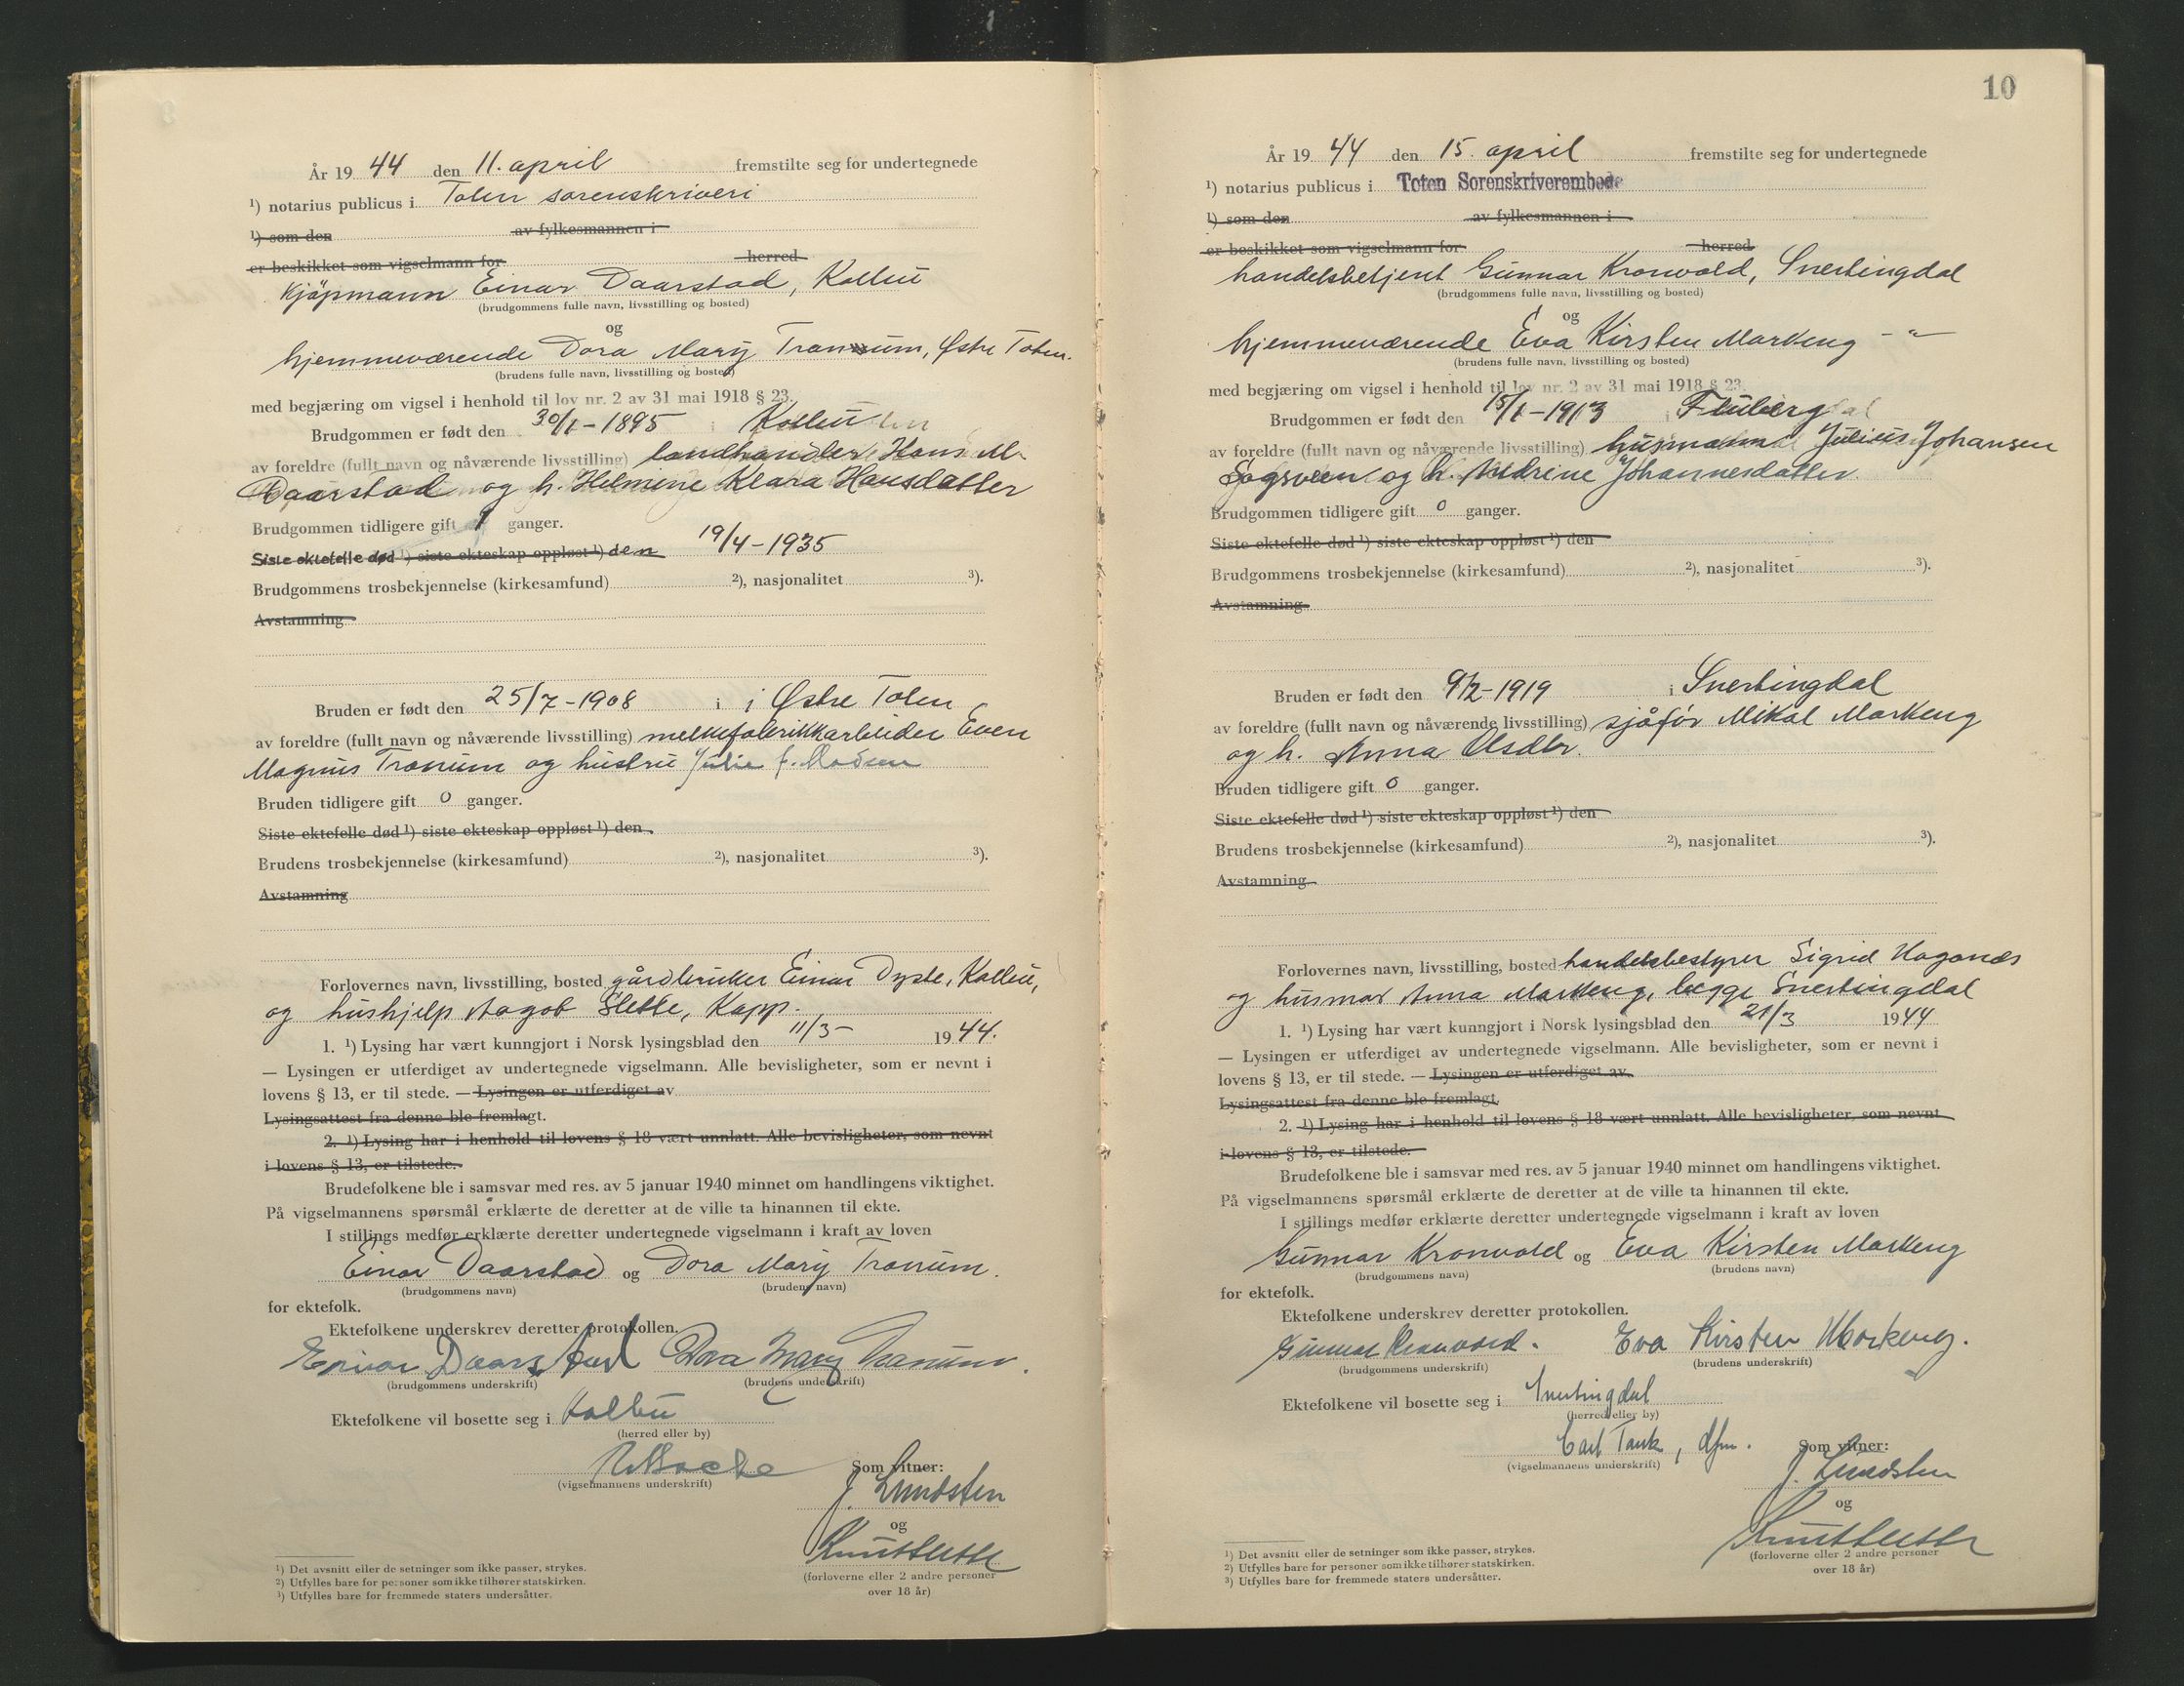 År 1944 den 11. april fremstilte seg for undertegnede
¹) notarius publicus i Toten sorenskriveri
¹) som den av fylkesmannen i
er beskikket som vigselmann for herred
Kjøpmann Einar Daarstad, Kolbu
(brudgommens fulle navn, livsstilling og bosted)
og
hjemmeværende Dora Mary Tranum, Østre Toten.
(brudens fulle navn, livsstilling og bosted)
med begjæring om vigsel i henhold til lov nr. 2 av 31 mai 1918 § 23.
Brudgommen er født den 30/1-1895 i Kolbu
av foreldre (fullt navn og nåværende livsstilling) landhandler Hans M.
Daarstad og h. Helmine Klara Hansdatter
Brudgommen tidligere gift 1 ganger.
Siste ektefelle død ¹) siste ekteskap oppløst ¹) den 19/4-1935
Brudgommens trosbekjennelse (kirkesamfund) ²), nasjonalitet ³).
Avstamning
Bruden er født den 25/7-1908 i i Østre Toten
av foreldre (fullt navn og nåværende livsstilling) melkefabrikkarbeider Even
Magnus Tranum og hustru Julie f. Madsen
Bruden tidligere gift 0 ganger.
Siste ektefelle død ¹) siste ekteskap oppløst ¹) den
Brudens trosbekjennelse (kirkesamfund) ²), nasjonalitet ³).
Avstamning
Forlovernes navn, livsstilling, bosted gårdbruker Einar Dyste, Kolbu,
og hushjelp Aagot Slette, Kapp.
1. ¹) Lysing har vært kunngjort i Norsk lysingsblad den 11/3- 1944.
— Lysingen er utferdiget av undertegnede vigselmann. Alle bevisligheter, som er nevnt i
lovens § 13, er til stede. — Lysingen er utferdiget av
Lysingsattest fra denne ble fremlagt.
2. ¹) Lysing har i henhold til lovens § 18 vært unnlatt. Alle bevisligheter, som nevnt
i lovens § 13, er tilstede.
Brudefolkene ble i samsvar med res. av 5 januar 1940 minnet om handlingens viktighet.
På vigselmannens spørsmål erklærte de deretter at de ville ta hinannen til ekte.
I stillings medfør erklærte deretter undertegnede vigselmann i kraft av loven
Einar Daarstad og Dora Mary Tranum.
(brudgommens navn) (brudens navn)
for ektefolk.
Ektefolkene underskrev deretter protokollen.
Einar Daarstad Dora Mary Tranum.
(brudgommens underskrift) (brudens underskrift)
Ektefolkene vil bosette seg i Kolbu
(herred eller by)
Som vitner:
(vigselmannens underskrift)
J. Lundsten
og
(forloverne eller 2 andre personer
over 18 år)
¹) Det avsnitt eller de setninger som ikke passer, strykes.
²) Utfylles bare for personer som ikke tilhører statskirken.
³) Utfylles bare for fremmede staters undersåtter.
10
År 1944 den 15. april fremstilte seg for undertegnede
¹) notarius publicus i Toten Sorenskriverembede
¹) som den av fylkesmannen i
er beskikket som vigselmann for herred
handelsbetjent Gunnar Kronvold, Snertingdal
(brudgommens fulle navn, livsstilling og bosted)
og
hjemmeværende Eva Kirsten Markeng - " -
(brudens fulle navn, livsstilling og bosted)
med begjæring om vigsel i henhold til lov nr. 2 av 31 mai 1918 § 23.
Brudgommen er født den 15/1-1913 i Fluberg
av foreldre (fullt navn og nåværende livsstilling) husmann Julius Johansen
og h. Johannesdatter.
Brudgommen tidligere gift 0 ganger.
Siste ektefelle død ¹) siste ekteskap oppløst ¹) den
Brudgommens trosbekjennelse (kirkesamfund) ²), nasjonalitet ³).
Avstamning
Bruden er født den 9/2-1919 i Snertingdal
av foreldre (fullt navn og nåværende livsstilling) sjåfør Mikal Markeng
og h. Anna Olsdtr.
Bruden tidligere gift 0 ganger.
Siste ektefelle død ¹) siste ekteskap oppløst ¹) den
Brudens trosbekjennelse (kirkesamfund) ²), nasjonalitet ³).
Avstamning
Forlovernes navn, livsstilling, bosted handelsbestyrer Sigrid Haganæs
og husmor Anna Markeng, begge Snertingdal
1. ¹) Lysing har vært kunngjort i Norsk lysingsblad den 21/3 1944
— Lysingen er utferdiget av undertegnede vigselmann. Alle bevisligheter, som er nevnt i
lovens § 13, er til stede. — Lysingen er utferdiget av
Lysingsattest fra denne ble fremlagt.
2. ¹) Lysing har i henhold til lovens § 18 vært unnlatt. Alle bevisligheter, som nevnt
i lovens § 13, er tilstede.
Brudefolkene ble i samsvar med res. av 5 januar 1940 minnet om handlingens viktighet.
På vigselmannens spørsmål erklærte de deretter at de ville ta hinannen til ekte.
I stillings medfør erklærte deretter undertegnede vigselmann i kraft av loven
Gunnar Kronvold og Eva Kirsten Markeng
(brudgommens navn) (brudens navn)
for ektefolk.
Ektefolkene underskrev deretter protokollen.
Gunnar Kronvold. Eva Kirsten Markeng.
(brudgommens underskrift) (brudens underskrift)
Ektefolkene vil bosette seg i Snertingdal
(herred eller by)
Carl Tank, dfm. Som vitner:
(vigselmannens underskrift)
J. Lundsten
og
(forloverne eller 2 andre personer
over 18 år)
¹) Det avsnitt eller de setninger som ikke passer, strykes.
²) Utfylles bare for personer som ikke tilhører statskirken.
³) Utfylles bare for fremmede staters undersåtter.